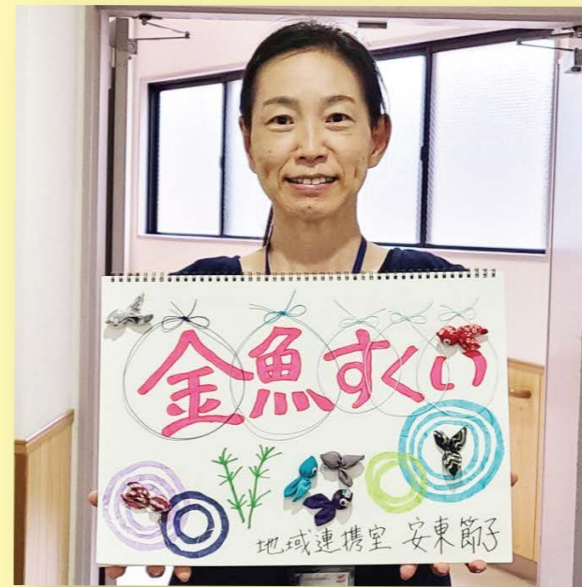 金魚すくい
地域連携室 安東節子